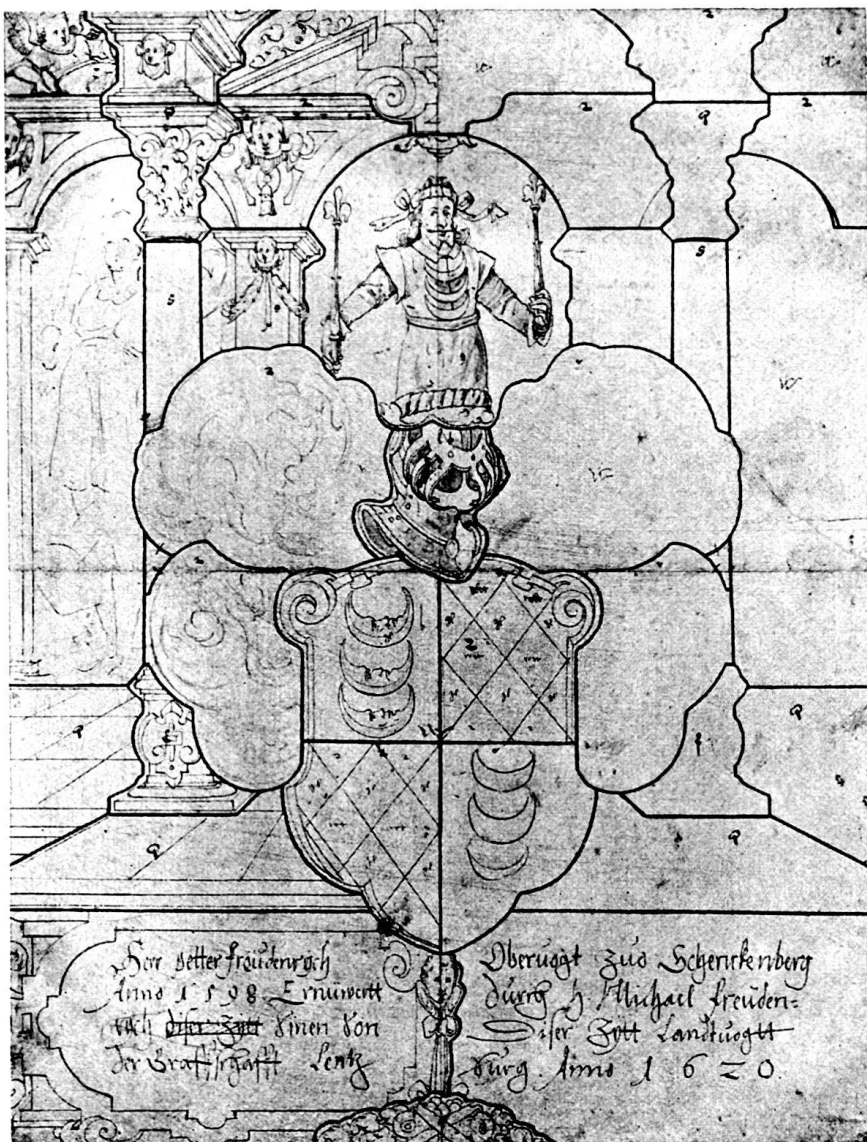 Herr Petter freüdenrych
Anno 1598 Ernuwertt
nach diser Zytt Sinen Son
Der Graffschafft Lentz
Obervogt zuo Schenckenberg
durch h. Michael freuden=
Diser Zytt Landtvogtt
burg. Anno 1620.